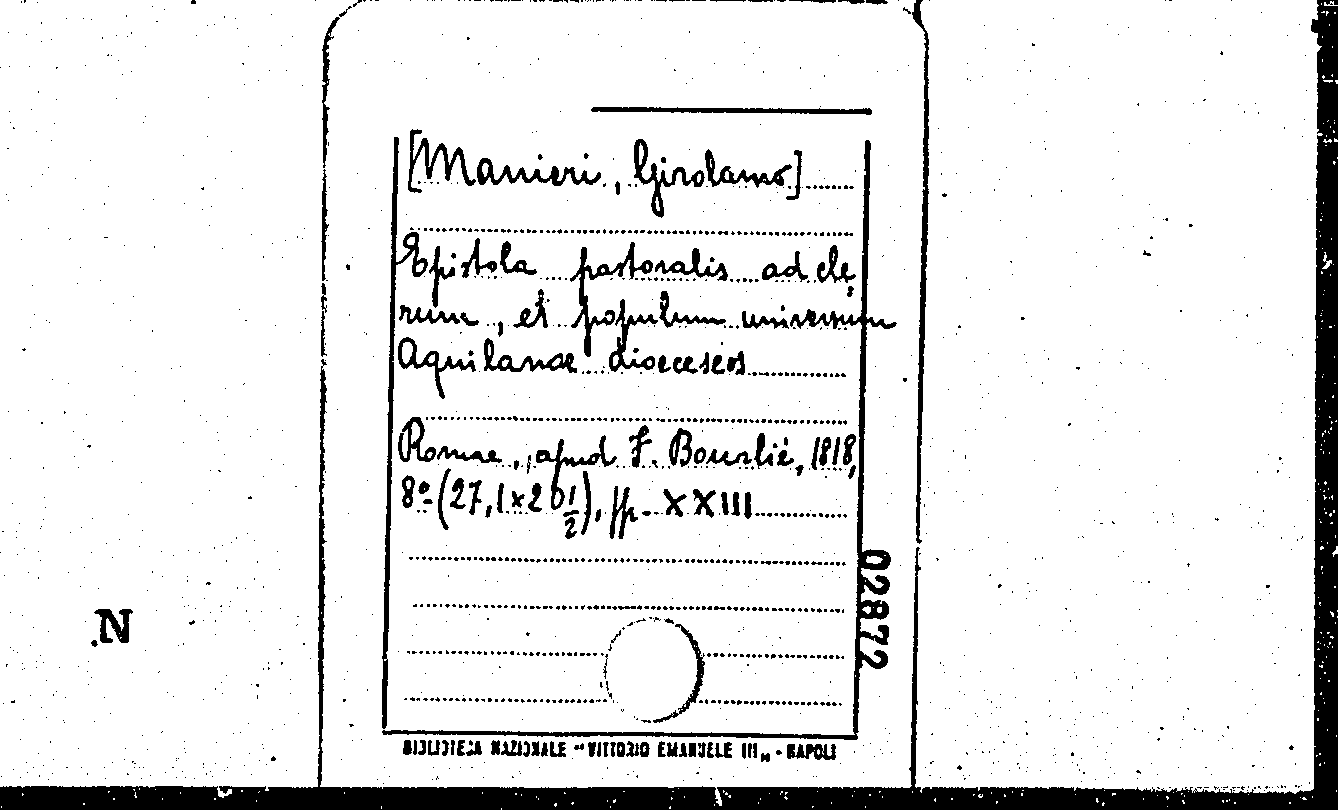 [Manieri, Girolamo]
Epistola pastoralis ad cle,
rum, et populum universum
Aquilanae dioeceseos
Romae, apud F. Bourlié, 1818,
8º (27,1×20 1/2), pp. XXIII
02872
N
BIBLIOTECA NAZIONALE "VITTORIO EMANUELE III„ - NAPOLI